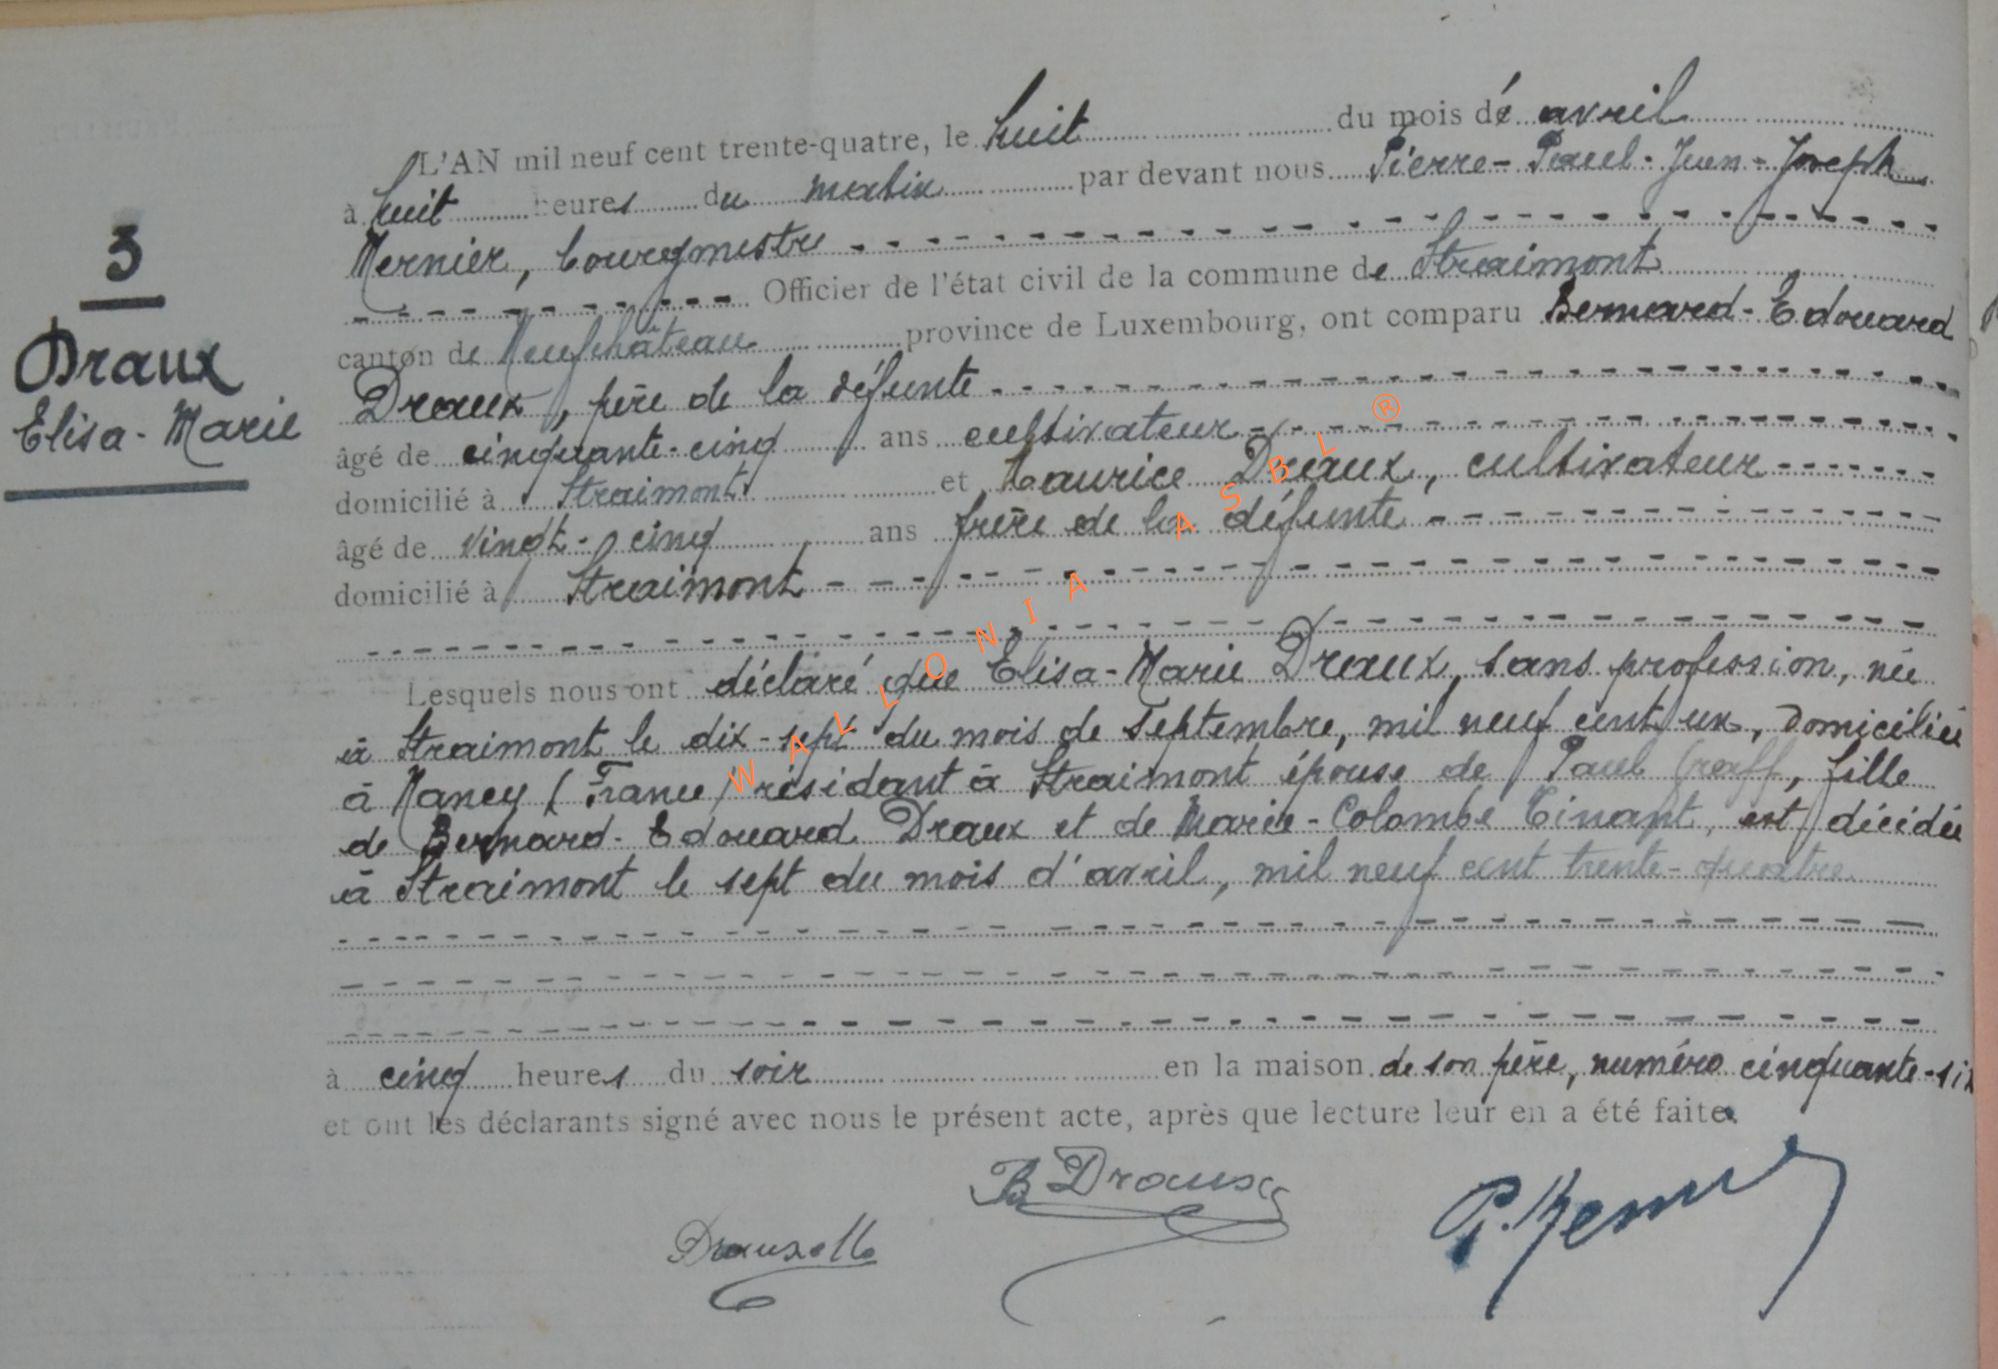 3
Draux
Elisa-Marie
L'AN mil neuf cent trente-quatre, le huit du mois de avril
à huit heures du matin par devant nous Pierre-Paul-Jean-Joseph
Mernier, bourgmestre
Officier de l'état civil de la commune de Straimont
canton de Neufchâteau province de Luxembourg, ont comparu Bernard-Edouard
Draux, père de la défunte
âgé de cinquante-cinq ans cultivateur
domicilié à Straimont et Maurice Draux, cultivateur
âgé de vingt-cinq ans frère de la défunte
domicilié à Straimont
Lesquels nous ont déclaré que Elisa-Marie Draux, sans profession, née
à Straimont le dix-sept du mois de septembre, mil neuf cent un, domiciliée
à Nancy (France) résidant à Straimont épouse de Paul Graff, fille
de Bernard-Edouard Draux et de Marie-Colombe Tinant, est décédée
à Straimont le sept du mois d'avril, mil neuf cent trente-quatre
à cinq heures du soir en la maison de son père, numéro cinquante-six
et ont les déclarants signé avec nous le présent acte, après que lecture leur en a été faite.
B Draux
WALLONIA ASBL ®